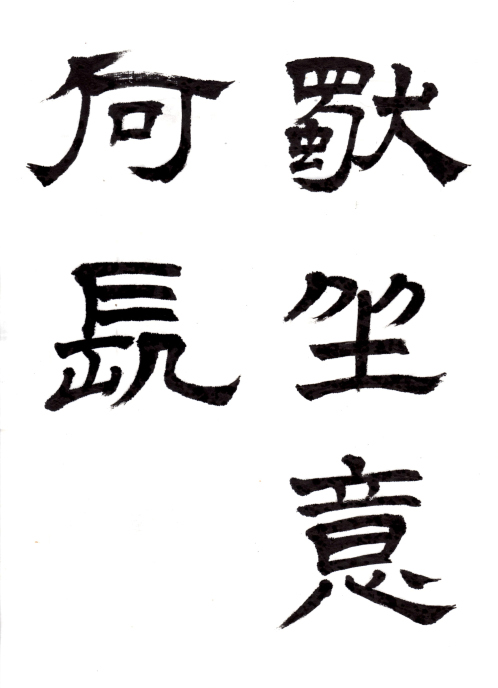 獨坐意
何長